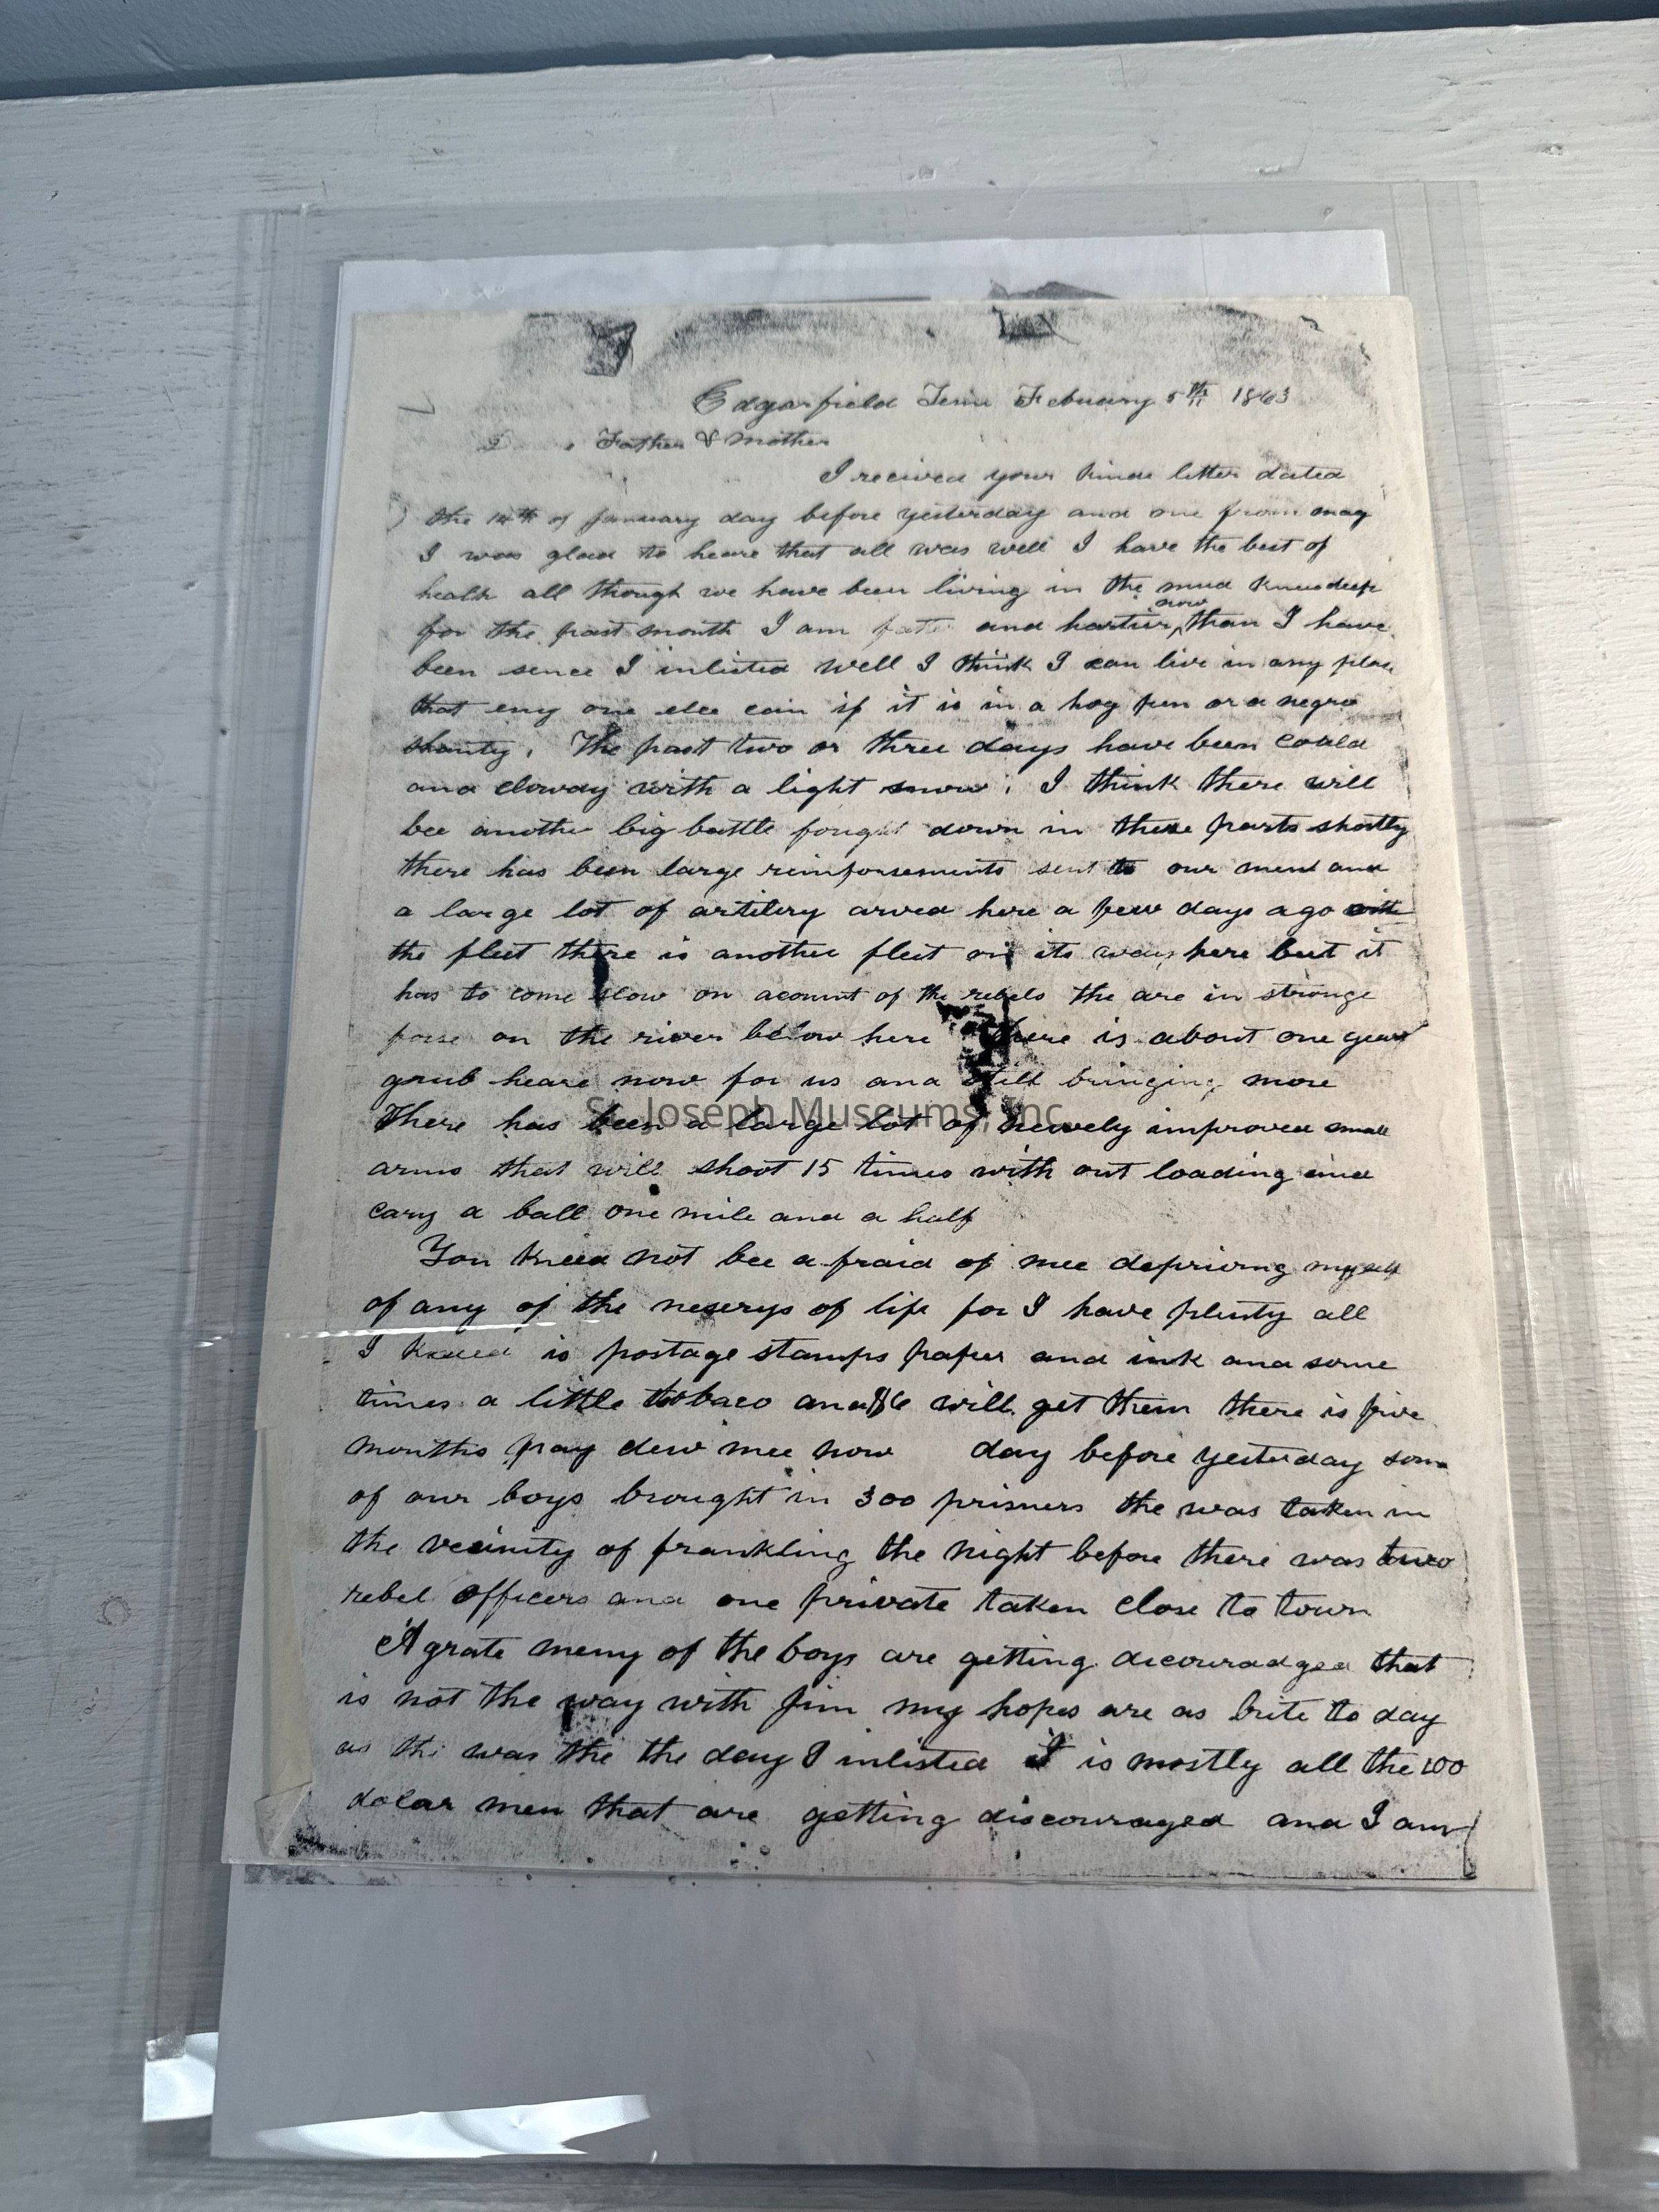 Edgarfield Tenn Febuary 5th 1863
Father & Mother
I received your kinde letter dated
the 14th of January day before yesterday and one from mag
I was glad to heare that all was well I have the best of
health all though we have been living in the mud kneedeep
for the past month I am and hartier now than I have
been sence I inlisted well I think I can live in any place
that eny one elce cain if it is in a hog pen or a negro
shanty. The past two or three days have been coald
and clowdy with a light snow; I think there will
bee another big battle fought down in these parts shortly
there has been large reinforsements sent to our men and
a large lot of artilery arved here a few days ago with
the fleet there is another fleet on its way here but it
has to come slow on acount of the rebels the are in stronge
forse on the river below here there is about one year
grub heare now for us and still bringing more
There has been a large lot of newely improved small
arms that will shoot 15 times with out loading and
cary a ball one mile and a half
You kneed not bee a fraid of mee depriving myself
of any of the neserys of life for I have plenty all
I kneed is postage stamps paper and ink and some
times a little tobaco and will get them there is five
months pay dew mee now day before yesterday some
of our boys brought in 300 prisners the was taken in
the vecinity of frankling the night before there was two
rebel officers and one private taken close to town
A grate meny of the boys are getting discouradged that
is not the way with Jim my hopes are as brite to day
as the was the the day I inlisted it is mostly all the 100
dolar men that are getting discouraged and I am
St. Joseph Museums, Inc.